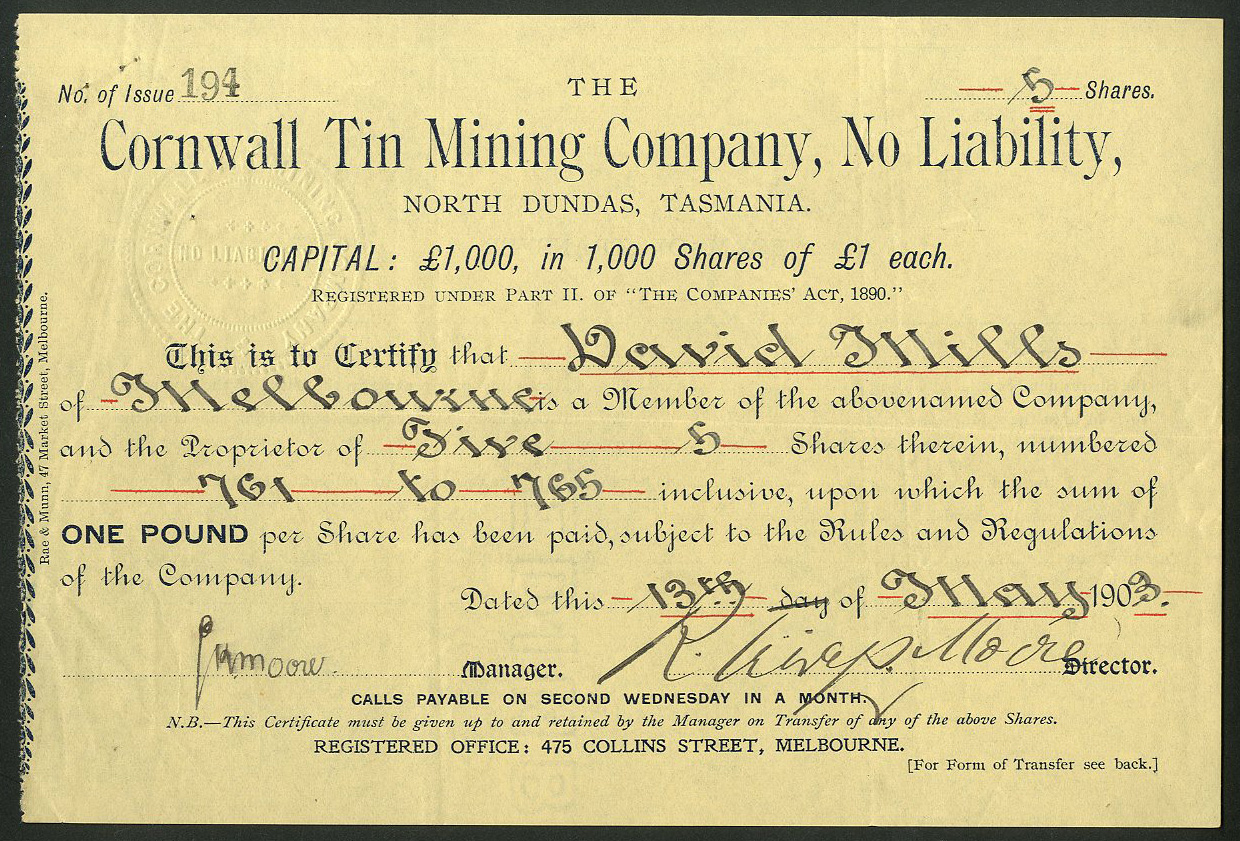 No. of Issue 194
THE
5 Shares.
Cornwall Tin Mining Company, No Liability,
NORTH DUNDAS, TASMANIA.
CAPITAL: £1,000, in 1,000 Shares of £1 each.
REGISTERED UNDER PART II. OF "THE COMPANIES' ACT, 1890."
This is to Certify that David Mills
of Melbourne is a Member of the abovenamed Company,
and the Proprietor of Five 5 Shares therein, numbered
761 to 765 inclusive, upon which the sum of
ONE POUND per Share has been paid, subject to the Rules and Regulations
of the Company.
Dated this 13th day of May 1903.
Moore Manager. R. Moore Director.
CALLS PAYABLE ON SECOND WEDNESDAY IN A MONTH.
N.B.—This Certificate must be given up to and retained by the Manager on Transfer of any of the above Shares.
REGISTERED OFFICE: 475 COLLINS STREET, MELBOURNE.
[For Form of Transfer see back.]
Rae & Munn, 47 Market Street, Melbourne.
NO LIABILITY